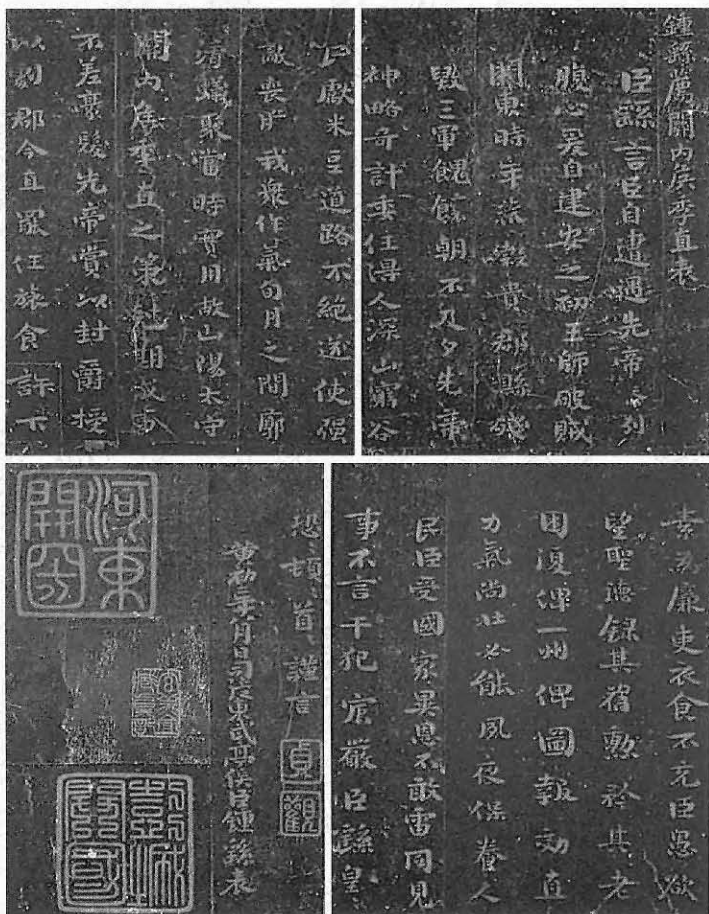 鍾繇薦關內侯季直表
臣繇言臣自遭遇先帝忝列
腹心爰自建安之初王師破賊
關東時年荒榖貴郡縣殘
毀三軍餽饟朝不及夕先帝
神略奇計委任得人深山窮谷
民獻米豆道路不絕遂使强
敵喪膽我衆作氣旬月之間廓
清蟻聚當時實用故山陽太守
關內侯季直之策尅期成事
不差豪髮先帝賞以封爵授
以劇郡今直罷任旅食許下
素為廉吏衣食不充臣愚欲
望聖德錄其舊勳矜其老
困復俾一州俾圖報効直
力氣尚壯必能夙夜保養人
民臣受國家異恩不敢雷同見
事不言干犯宸嚴臣繇皇〻
恐〻頓〻首〻謹言
黃初二年八月日司徒東武亭侯臣鍾繇表
貞觀
河東